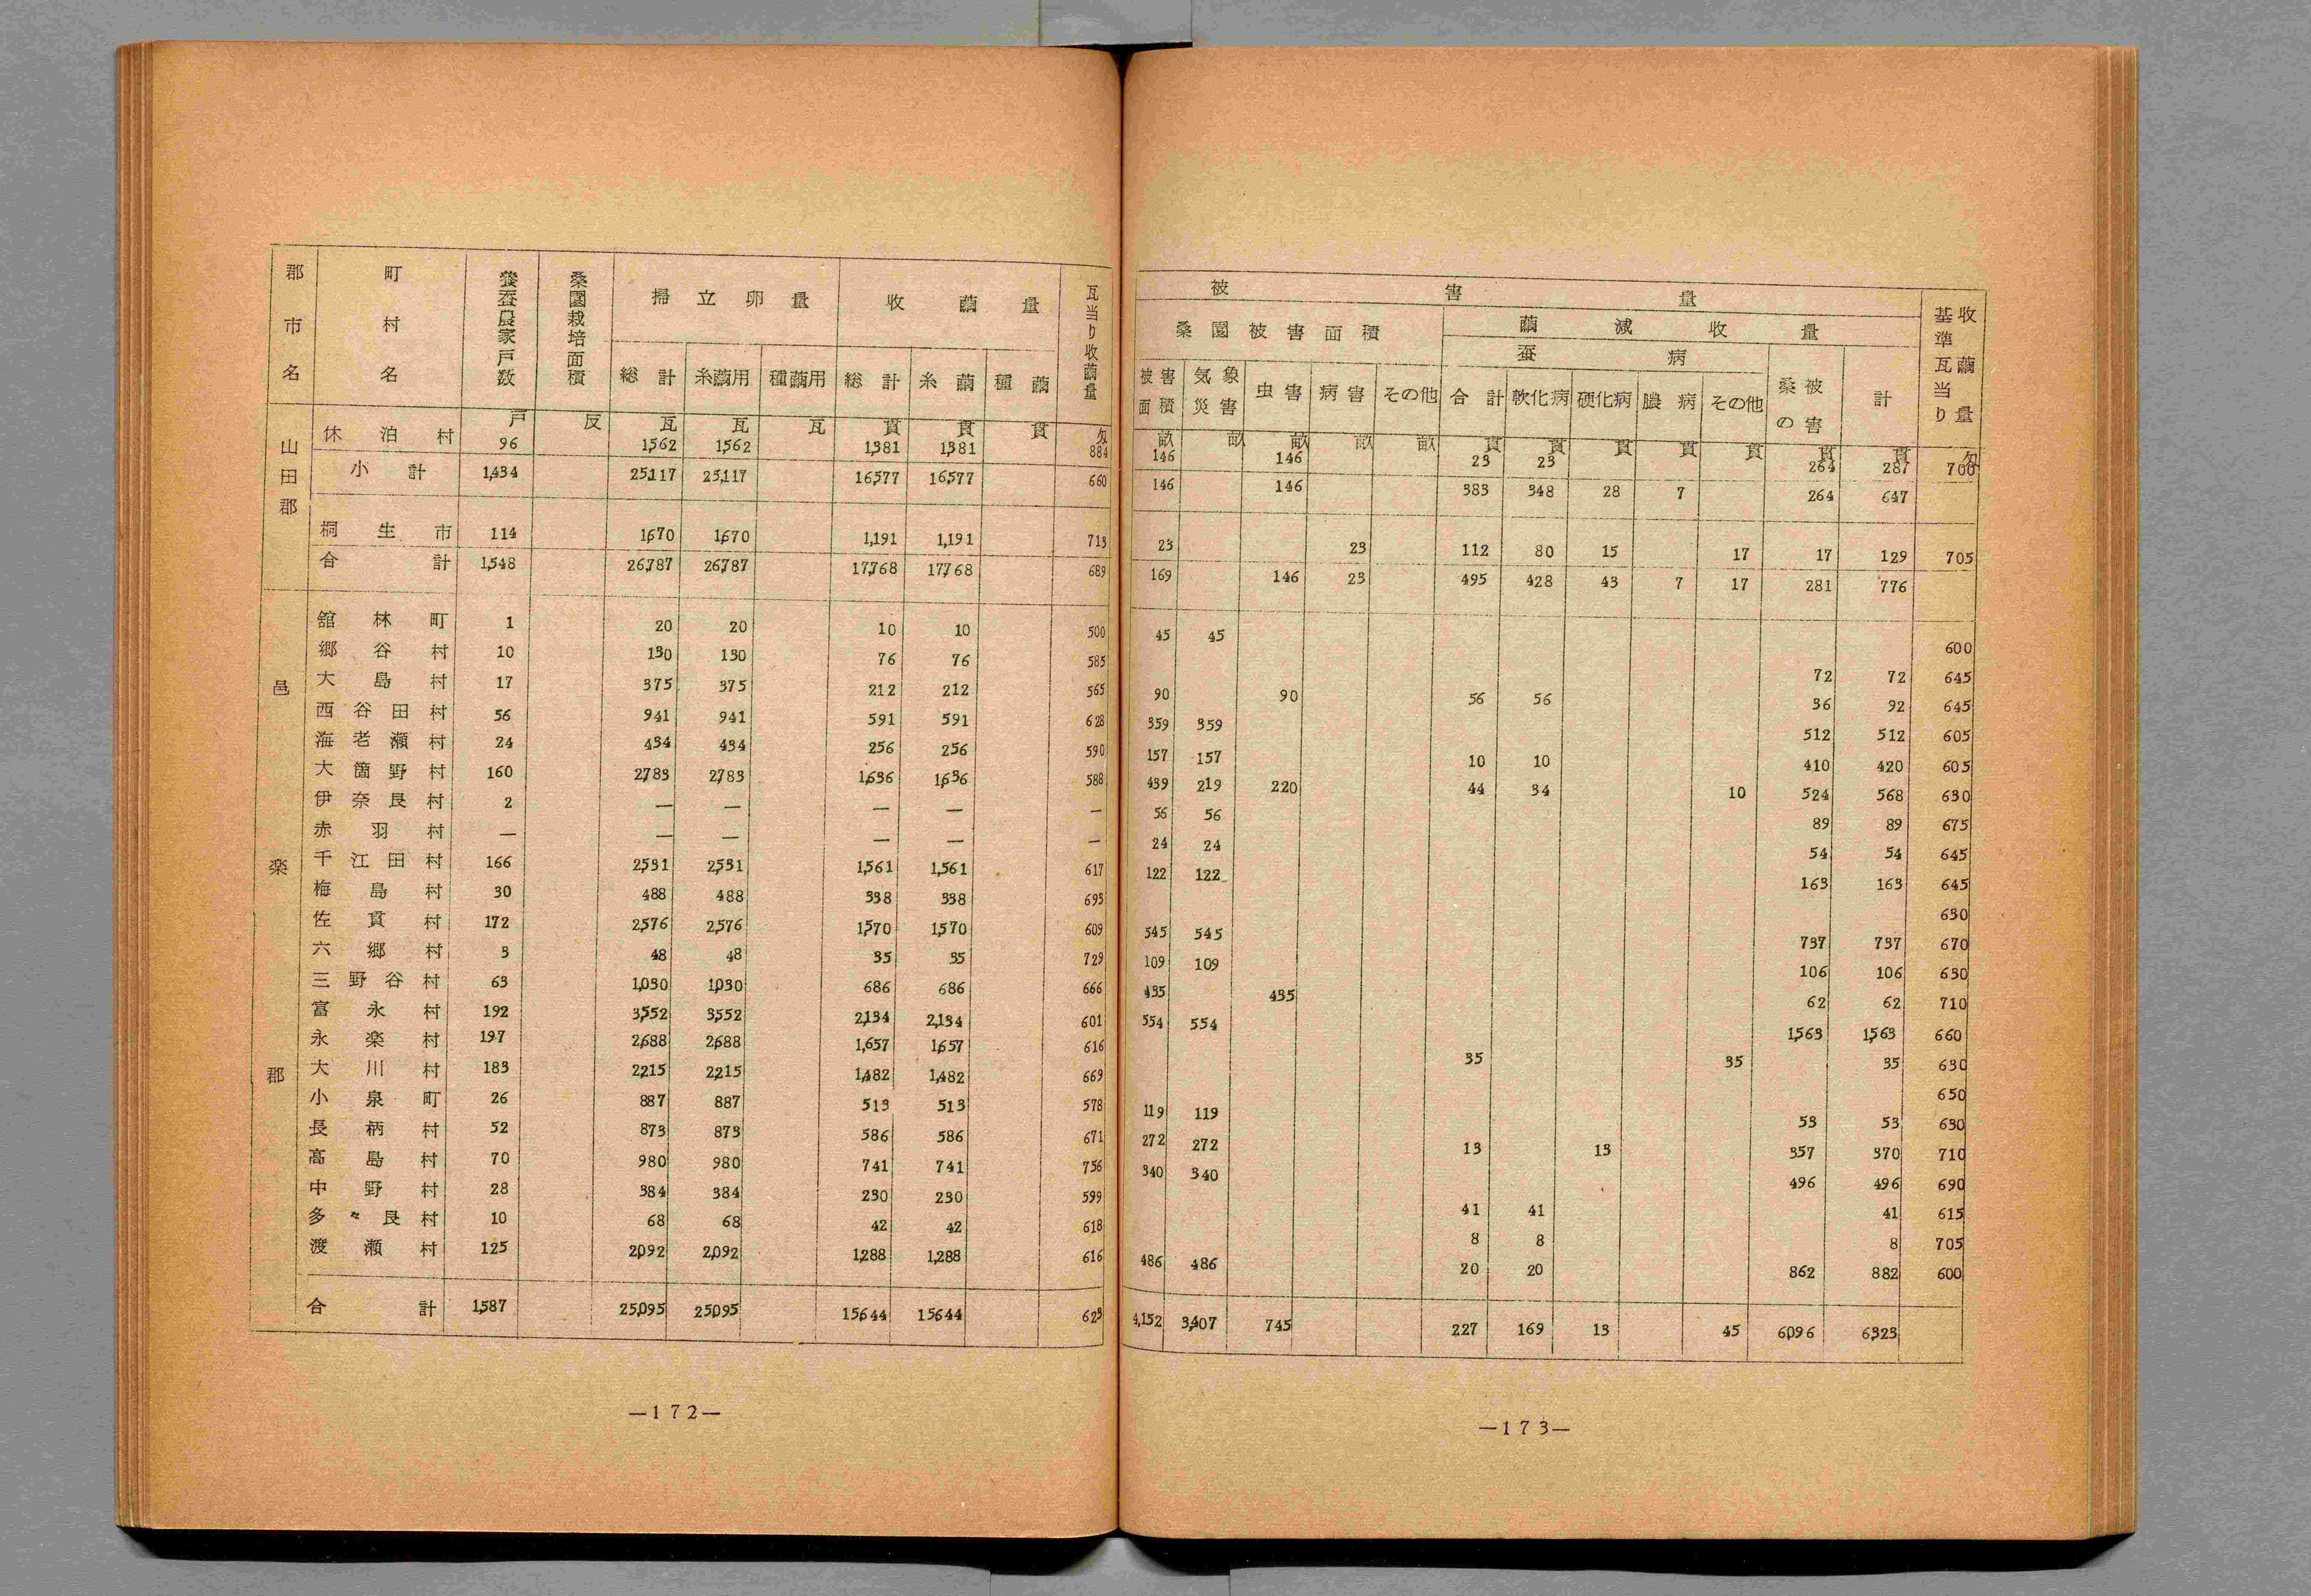 郡市名 町村名 養蚕農家戸数 桑園栽培面積 掃立卵量 收繭量 瓦当り收繭量
総計 糸繭用 種繭用 総計 糸繭 種繭
戸 反 瓦 瓦 瓦 貫 貫 貫 匁
山田郡
休泊村 96 1,562 1,562 1,381 1,381 884
小計 1,434 25,117 25,117 16,577 16,577 660
桐生市 114 1,670 1,670 1,191 1,191 713
合計 1,548 26,787 26,787 17,768 17,768 689
邑楽郡
舘林町 1 20 20 10 10 500
郷谷村 10 130 130 76 76 585
大島村 17 375 375 212 212 565
西谷田村 56 941 941 591 591 628
海老瀬村 24 434 434 256 256 590
大箇野村 160 2,783 2,783 1,636 1,636 588
伊奈良村 2 — — — — —
赤羽村 — — — — — —
千江田村 166 2,531 2,531 1,561 1,561 617
梅島村 30 488 488 338 338 693
佐貫村 172 2,576 2,576 1,570 1,570 609
六郷村 3 48 48 35 35 729
三野谷村 63 1,030 1,030 686 686 666
富永村 192 3,552 3,552 2,134 2,134 601
永楽村 197 2,688 2,688 1,657 1,657 616
大川村 183 2,215 2,215 1,482 1,482 669
小泉町 26 887 887 513 513 578
長柄村 52 873 873 586 586 671
高島村 70 980 980 741 741 756
中野村 28 384 384 230 230 599
多々良村 10 68 68 42 42 618
渡瀬村 125 2,092 2,092 1,288 1,288 616
合計 1,587 25,095 25,095 15,644 15,644 623
—172—
被害量 基準瓦当り收繭量
桑園被害面積 繭減收量
蚕病 桑の被害 計
被害面積 気象災害 虫害 病害 その他 合計 軟化病 硬化病 膿病 その他
畝 畝 畝 畝 畝 貫 貫 貫 貫 貫 貫 貫 匁
146 146 23 23 264 287 700
146 146 383 348 28 7 264 647
23 23 112 80 15 17 17 129 705
169 146 23 495 428 43 7 17 281 776
45 45 600
72 72 645
90 90 56 56 36 92 645
359 359 512 512 605
157 157 10 10 410 420 605
439 219 220 44 34 10 524 568 630
56 56 89 89 675
24 24 54 54 645
122 122 163 163 645
630
545 545 737 737 670
109 109 106 106 630
435 435 62 62 710
554 554 1,563 1,563 660
35 35 35 630
650
119 119 53 53 630
272 272 13 13 357 370 710
340 340 496 496 690
41 41 41 615
8 8 8 705
486 486 20 20 862 882 600
4,152 3,407 745 227 169 13 45 6,096 6,323
—173—